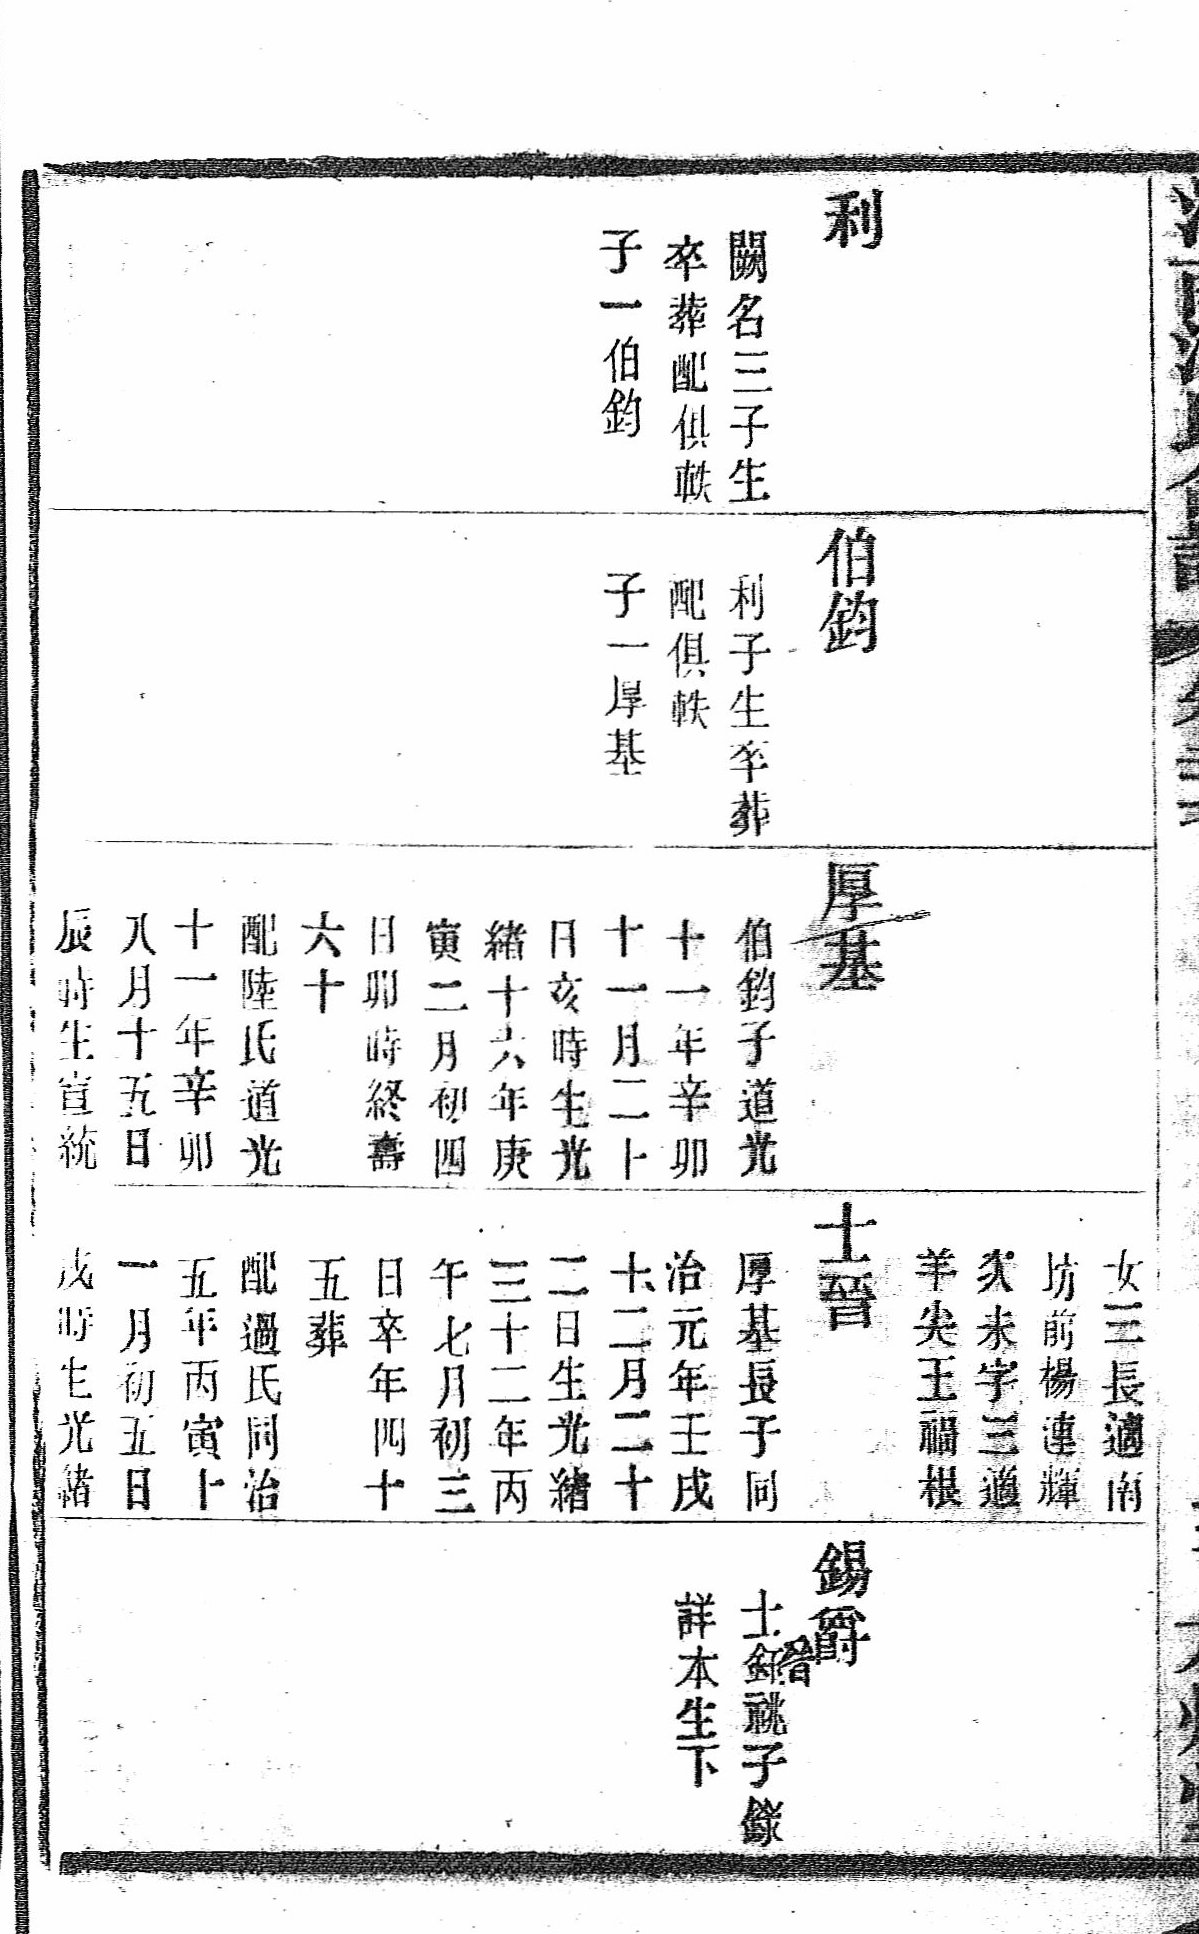 利
闕名三子生
卒葬配俱軼
子一伯鈞
伯鈞
利子生卒葬
配俱軼
子一厚基
厚基
伯鈞子道光
十一年辛卯
十一月二十
日亥時生光
緒十六年庚
寅二月初四
日卯時終壽
六十
配陸氏道光
十一年辛卯
八月十五日
辰時生宣統
女三長適南
坊前楊連輝
次未字三適
羊尖王福根
士晉
厚基長子同
治元年壬戌
十二月二十
二日生光緒
三十二年丙
午七月初三
日卒年四十
五葬
配過氏同治
五年丙寅十
一月初五日
戌時生光緒
錫爵
士
晉
祧子
詳本生下